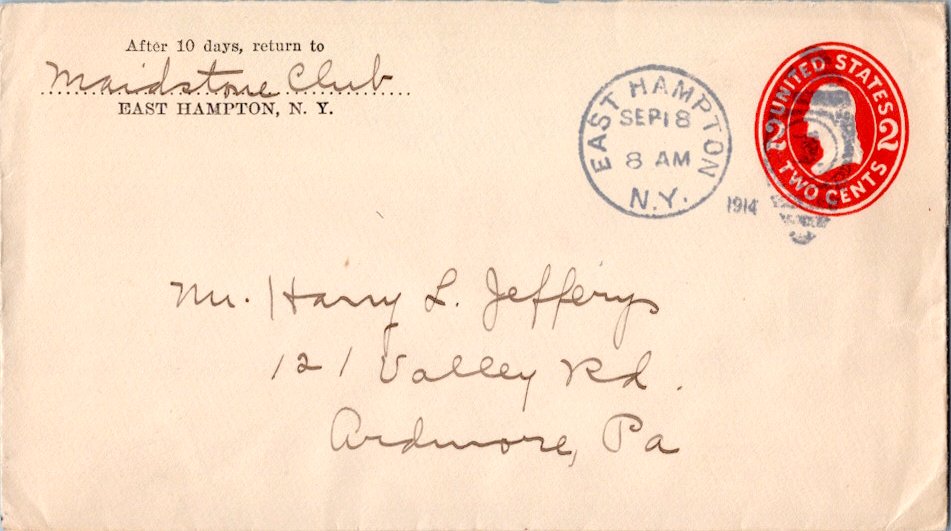 After 10 days, return to
Maidstone Club
EAST HAMPTON, N. Y.
EAST HAMPTON
SEP 18
8 AM
N.Y.
1914
UNITED STATES
2 2
TWO CENTS
Mr. Harry L. Jefferys
121 Valley Rd.
Ardmore, Pa